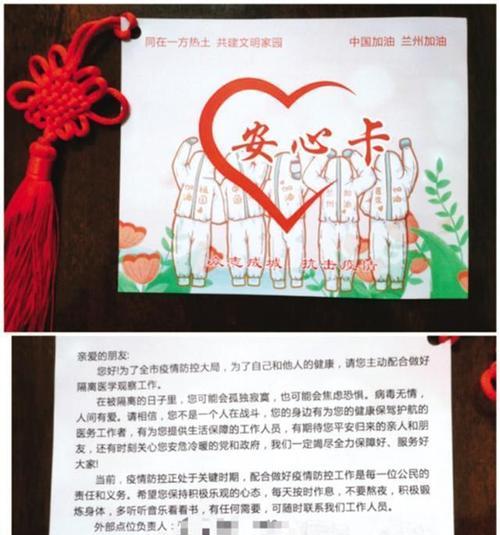 同在一方热土 共建文明家园
中国加油 兰州加油
安心卡
加油
加油
众志成城 抗击疫情
亲爱的朋友:
您好!为了全市疫情防控大局，为了自己和他人的健康，请您主动配合做好
隔离医学观察工作。
在被隔离的日子里，您可能会孤独寂寞，也可能会焦虑恐惧。病毒无情，
人间有爱。请相信，您不是一个人在战斗，您的身边有为您的健康保驾护航的
医务工作者，有为您提供生活保障的工作人员，有期待您平安归来的亲人和朋
友，还有时刻关心您安危冷暖的党和政府，我们一定竭尽全力保障好、服务好
大家!
当前，疫情防控正处于关键时期，配合做好疫情防控工作是每一位公民的
责任和义务。希望您保持积极乐观的心态，每天按时作息，不要熬夜，积极锻
炼身体，多听听音乐看看书，有任何需要，可随时联系我们工作人员。
外部点位负责人：